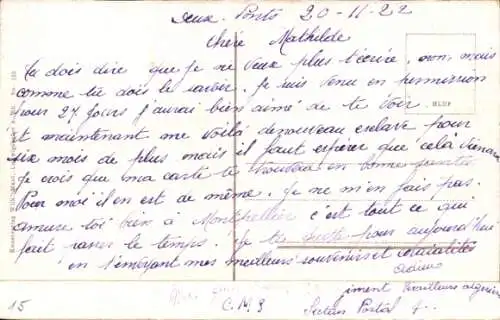 Deux-Ponts 20-11-22
Chère Mathilde
Tu dois dire que je ne veux plus t'écrire, non, mais
comme tu dois le savoir. Je suis venu en permission
pour 27 jours j'aurai bien aimé de te voir.
et maintenant me voilà denouveau esclave pour
six mois de plus mais il faut espérer que celà
Je crois que ma carte te trouvera en bonne santée
Pour moi il en est de même. Je ne m'en fais pas.
amuse toi bien à Montpellier c'est tout ce qui
fait passer le temps. Je te quitte pour aujourd'hui
en t'envoyant mes meilleurs souvenirs et
adieu
iment Tirailleurs algérien
Secteur Postal
C.M.3
15